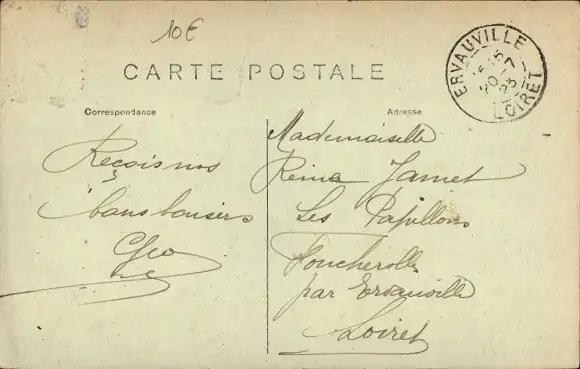 10€
CARTE POSTALE
ERVAUVILLE
15 15
20-7
23
LOIRET
Correspondance
Adresse
Reçois nos
bons baisers
Geo
Mademoiselle
Reina Jamet
Les Papillons
Foucherolle
par Ervauville
Loiret